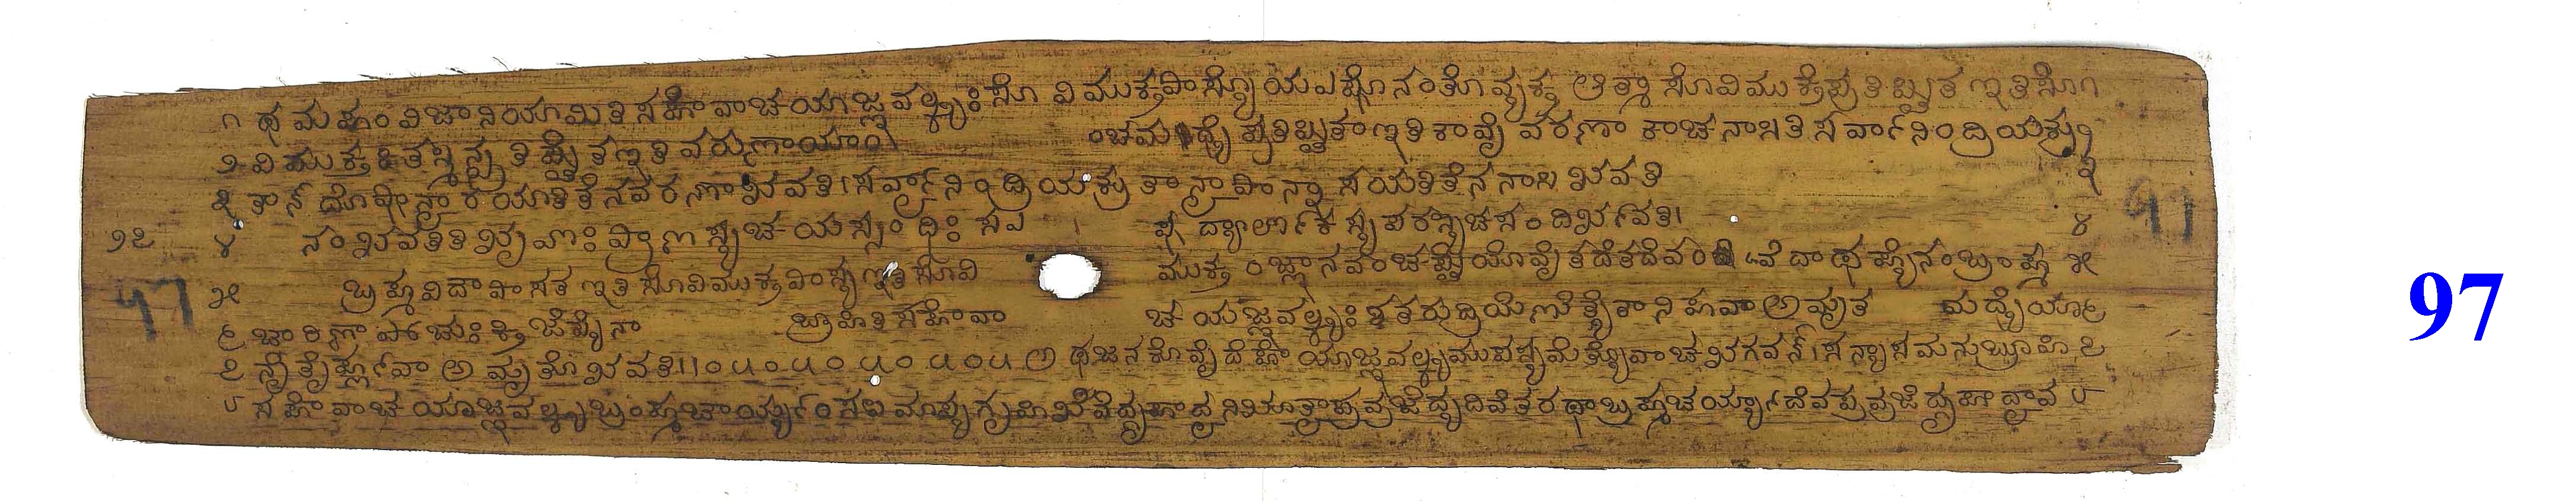 ೧ ಥಮಹಂ ವಿಜಾನಿಯಾಮಿತಿ ಸಹೋವಾಚ ಯಾಜ್ಞವಲ್ಕ್ಯಃ ಸೋ ವಿಮುಕ್ತ ಪಾಸ್ಯೋ ಯ ಏಷೋನಂತೋವ್ಯಕ್ತ ಆತ್ಮಾ ಸೋವಿಮುಕ್ತೆ ಪ್ರತಿಷ್ಠಿತ ಇತಿ ಸೋ ೧
೨ ವಿಮುಕ್ತಃ ಕಸ್ಮಿನ್ಪ್ರತಿಷ್ಠಿತ ಇತಿ ವರುಣಾಯಾಂ ಚ ಮಧ್ಯೆ ಪ್ರತಿಷ್ಠಿತಾ ಇತಿ ಕಾವೈ ವರಣಾ ಕಾಚ ನಾಸಿತಿ ಸರ್ವಾನಿಂದ್ರಿಯಕೃ ೨
೩ ತಾನ್ ದೋಷಾನ್ವಾರಯಾತಿ ತೆನ ವರಣಾ ಭವತಿ। ಸರ್ವಾನಿಂದ್ರಿಯಕೃತಾನ್ಪಾಪಾನ್ನಾಸಯತಿ ತೆನ ನಾಸಿ ಭವತಿ ೩
೧೭ ೪ ನಂ ಭವತಿತಿ ಭೃವೋಃ ಘ್ರಾಣಸ್ಯ ಚ ಯಸ್ಸಂಧಿಃ ಸ ಏಷ ದ್ಯೌರ್ಲೋಕಸ್ಯ ಪರಸ್ಯ ಚ ಸಂದಿರ್ಭವತಿ। ೪
೫ ಬ್ರಹ್ಮವಿದಾಪಾಸತ ಇತಿ ಸೋವಿಮುಕ್ತ ಪಾಸ್ಯ ಇತಿ ಸೋವಿಮುಕ್ತಂ ಜ್ಞಾನಮಾಚಷ್ಟೆ ಯೋವೈ ತದೆತದೆವಂ ವೆದಾಥ ಹೈನಂ ಬ್ರಾಹ್ಮ ೫
೬ ಚಾರಿಣಾ ಪೋಚುಃ ಕಿಂ ಜಪ್ಯೆನಾ ಬ್ರೂಹಿತಿ ಸಹೋವಾಚ ಯಾಜ್ಞವಲ್ಕ್ಯಃ ಶತರುದ್ರಿಯೆಣೆತ್ಯೆತಾನಿ ಹವಾ ಅಮೃತ ಮಧೈಯಾ ೬
೭ ನ್ಯೆತೈರ್ಹವಾ ಅಮೃತೋ ಭವತಿ॥೦ ೫೦ ೫೦ ೫೦ ೫೦೫ ಅಥ ಜನಕೋ ವೈದೆಹೋ ಯಾಜ್ಞವಲ್ಕ್ಯಮುಪಸೃಮೆತ್ಯೋವಾಚ ಭಗವನ್। ಸನ್ಯಾಸಮನುಬ್ರೂಹಿ ೭
೮ ಸಹೋವಾಚ ಯಾಜ್ಞವಲ್ಕ್ಯ ಬ್ರಂಹ್ಮಚಾರ್ಯ್ಯಂ ಸಮಾಪ್ಯ ಗೃಹಿ ಭವೆದ್ಗೃಹಾದ್ವನಿ ಭೂತ್ವಾ ಪ್ರವ್ರಜೆದ್ಯದಿವೆತರಥಾ ಬ್ರಹ್ಮಚರ್ಯ್ಯಾದೆವ ಪ್ರವ್ರಜೆದ್ಗೃಹಾದ್ವಾವ ೮
97
97
97